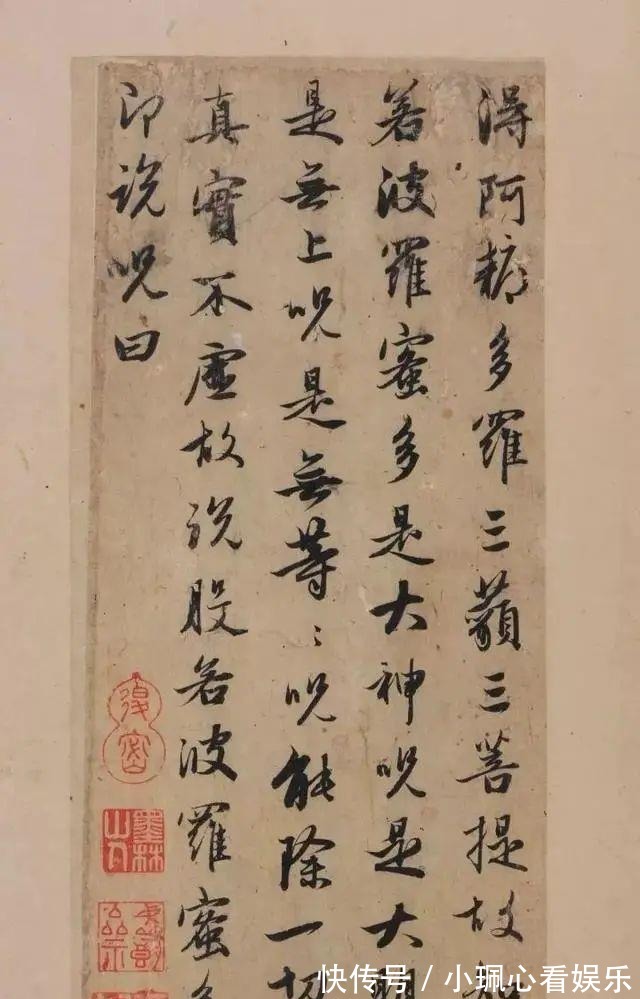 得阿耨多羅三藐三菩提故
若波羅蜜多是大神呪是大明
是無上呪是無等〻呪能除一切
真實不虛故說般若波羅蜜多
即說呪曰
墨林山人
快传号 / 小珮心看娱乐